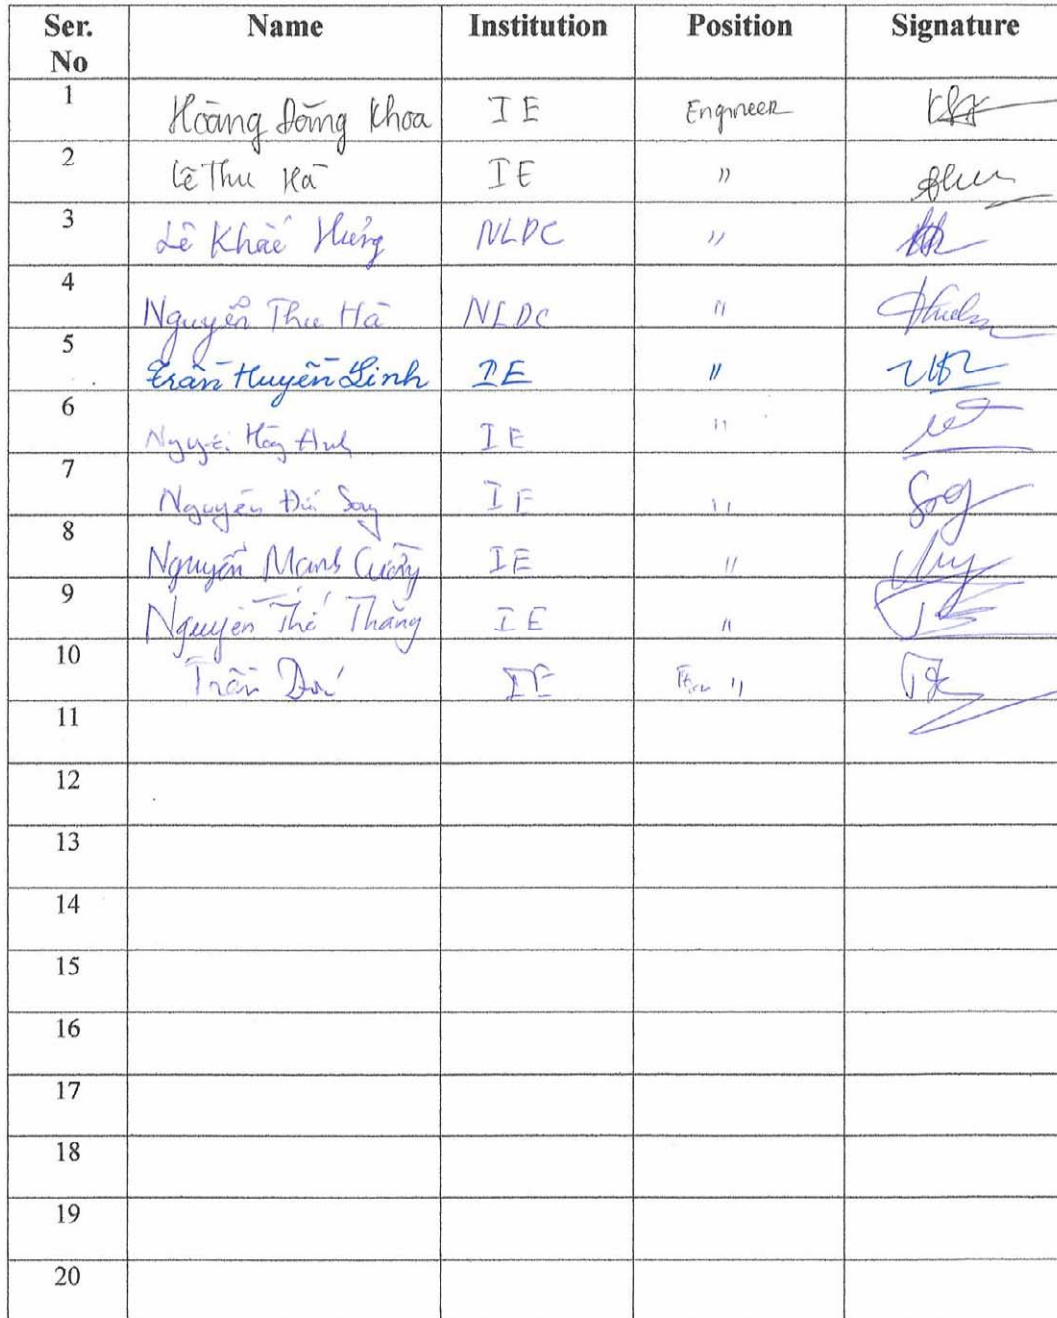 Ser. No Name Institution Position Signature
1 Hoàng Đăng Khoa IE Engineer
2 Lê Thu Hà IE "
3 Lê Khắc Hưng NLDC "
4 Nguyễn Thu Hà NLDC "
5 Trần Huyền Linh IE "
6 Anh IE "
7 Nguyễn IE "
8 Nguyễn Mạnh Cường IE "
9 Nguyễn Thế Thắng IE "
10 Trần IE "
11
12
13
14
15
16
17
18
19
20